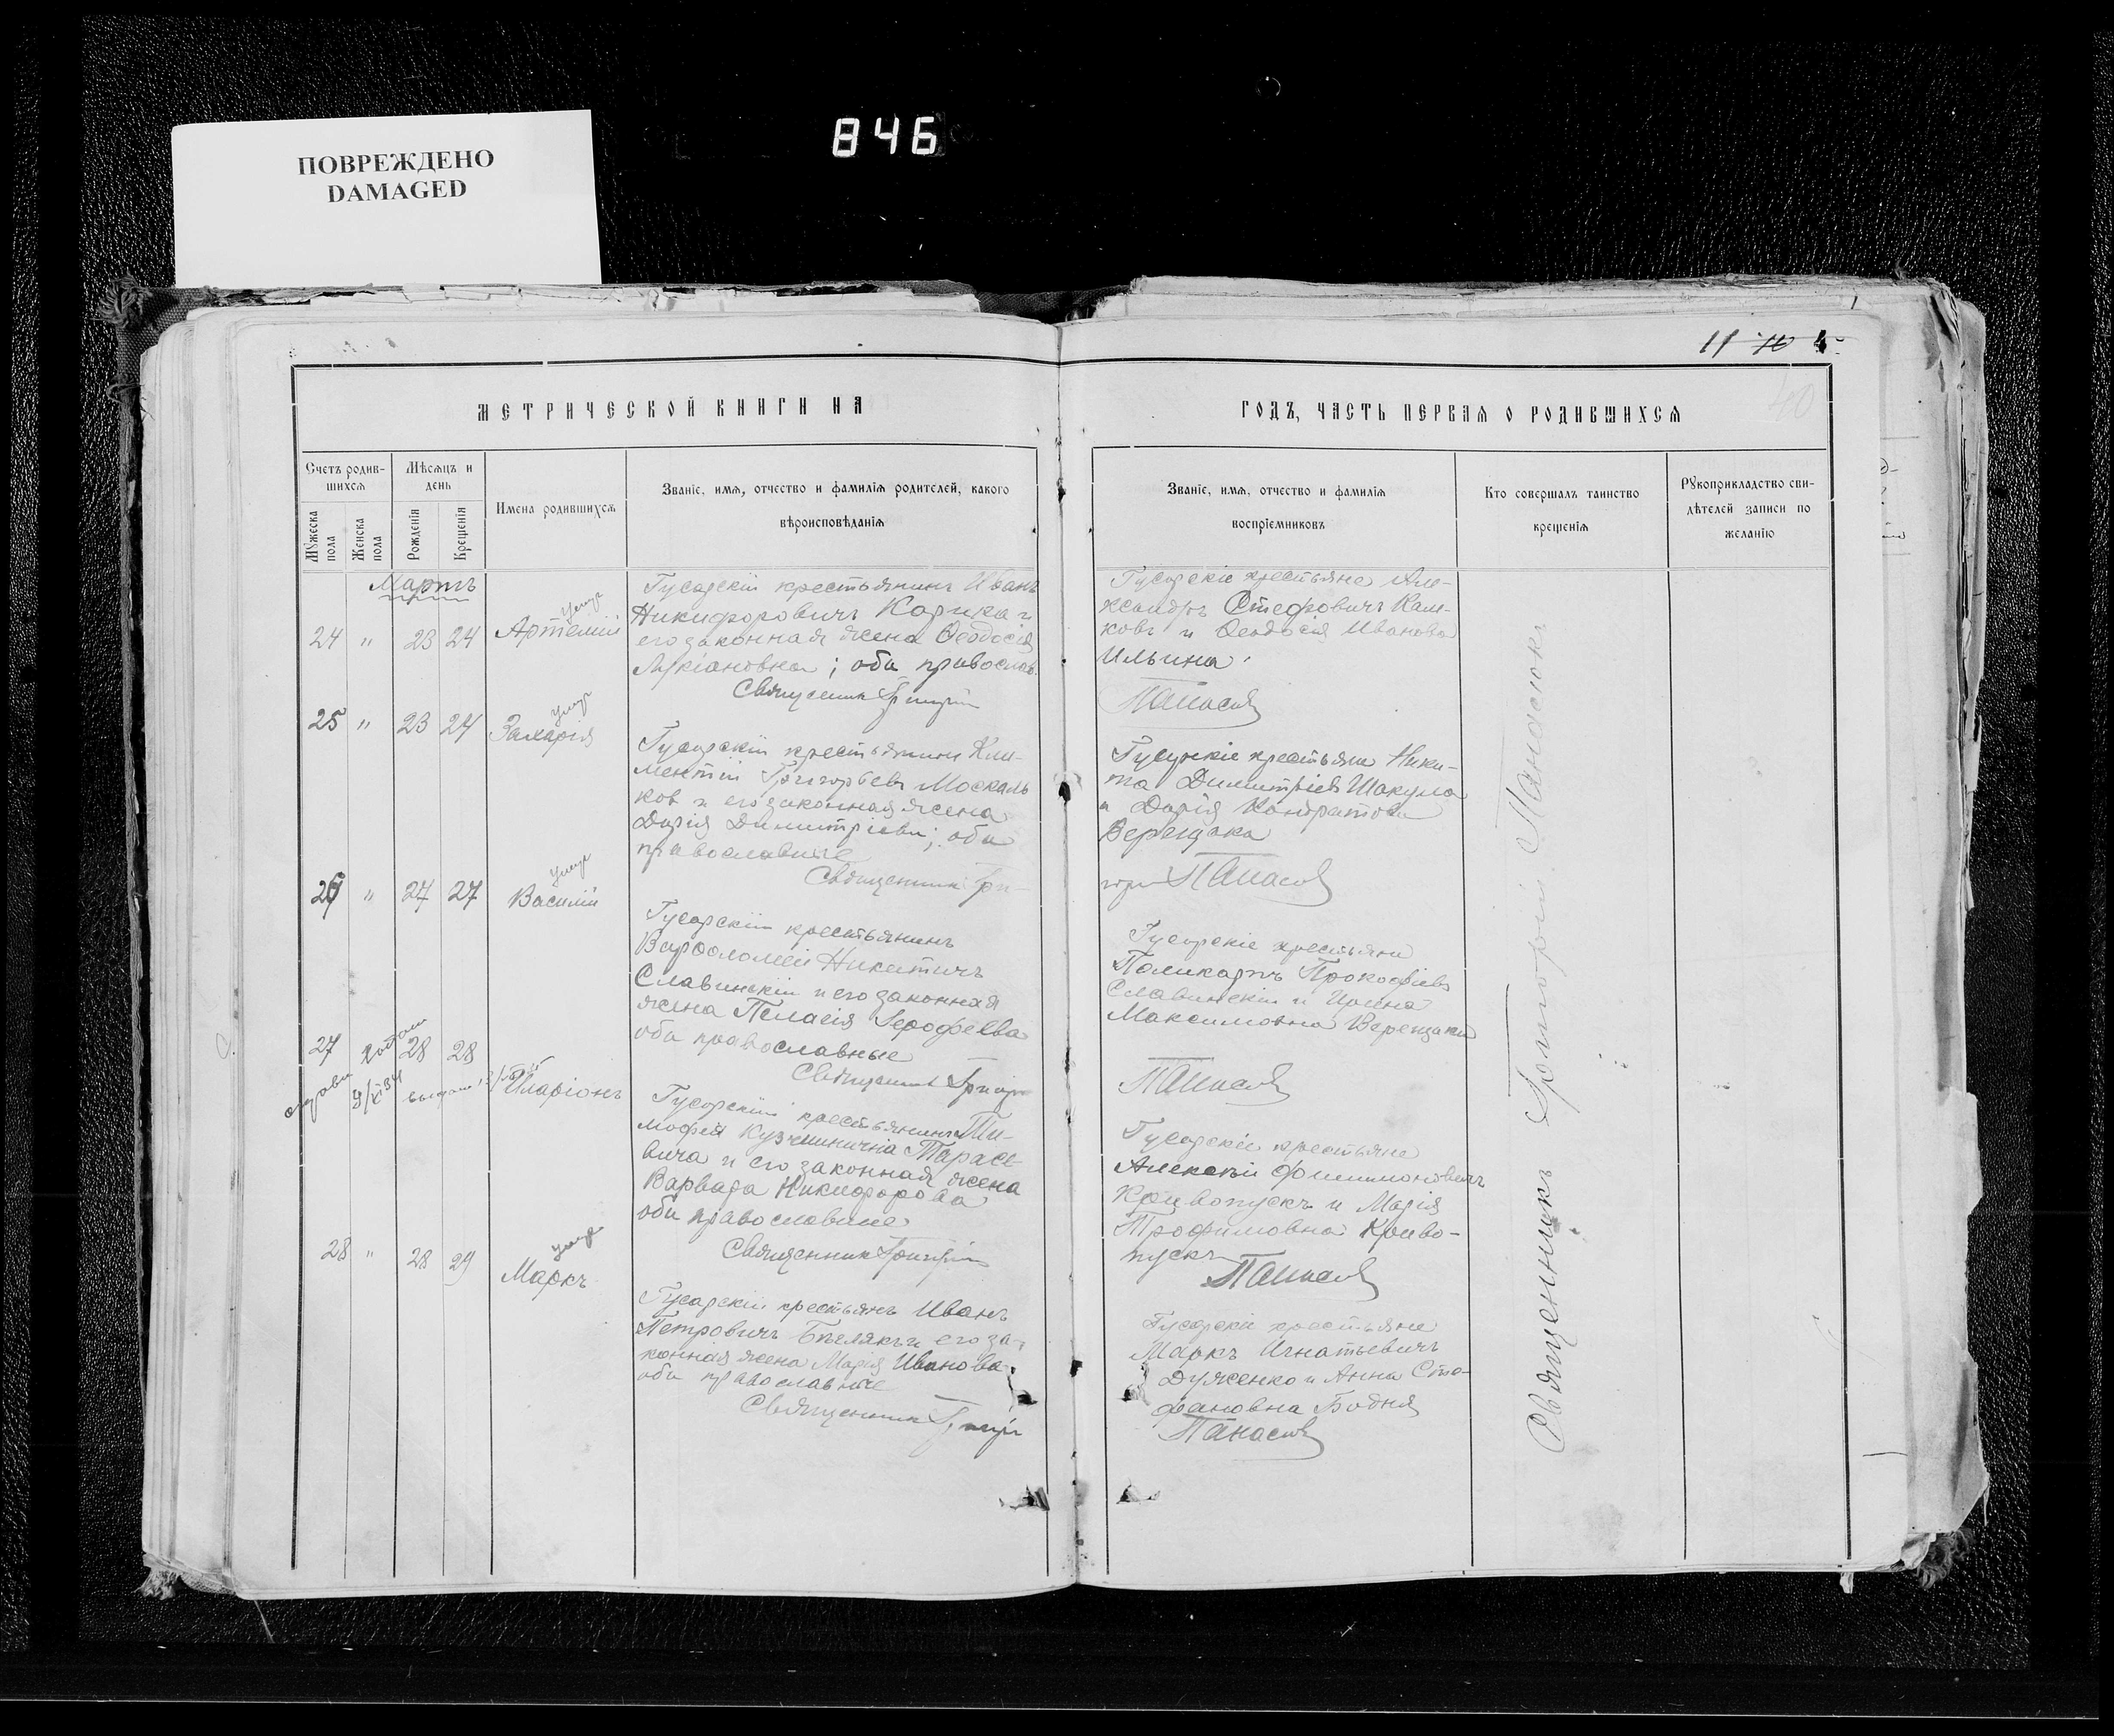 ПОВРЕЖДЕНО
DAMAGED
846
11 10
МЕТРИЧЕСКОЙ КНИГИ НА
ГОДЪ, ЧАСТЬ ПЕРВАЯ О РОДИВШИХСЯ
Счетъ родив-
шихся
Мужеска пола
Женска пола
Мѣсяцъ и
день
Рожденія
Крещенія
Имена родившихся
Званіе, имя, отчество и фамилія родителей, какого
вѣроисповѣданія
Званіе, имя, отчество и фамилія
воспріемниковъ
Кто совершалъ таинство
крещенія
Рукоприкладство сви-
дѣтелей записи по
желанію
Мартъ
24 " 23 24
умер
Артемій
Гусарскій крестьянинъ Иванъ
Никифоровичъ Карика и
его законная жена Ѳеодосія
Лукіановна; оба православ.
Священникъ Григорій
Гусарскіе крестьяне Але-
ксандръ
и Ѳеодосія Иванова
Ильина.
Панасюк
25 " 23 24
умер
Захарія
Гусарскій крестьянин Кли-
ментій Григорьев Москаль
ков и его законная жена
Дарія Димитріева; оба
православные
Священник Гри-
Гусарскіе крестьяне Ники-
та Димитріев Шакула
и Дарія Кондратова
Верещака
горій Панасюк
26 " 27 27
умер
Василій
Гусарскій крестьянинъ
Варѳоломей Никитичъ
Славинскій и его законная
жена Пелагія Іерофеева
оба православные
Священникъ Григор
Гусарскіе крестьяне
Поликарпъ Прокофіевъ
Славинскій и Ирина
Максимовна Верещака
Панасюк
27 28 28
Иларіонъ
Гусарскій крестьянинъ Ти-
мофей Кузьминична Тарасе-
вича и его законная жена
Варвара Никифорова
оба православные
Священник Григорій
Гусарскіе крестьяне
Алексѣй Филимоновичъ
Кривопускъ и Марія
Трофимовна Криво-
пускъ
Панасюк
28 " 28 29
умер
Маркъ
Гусарскій крестьянъ Иванъ
Петровичъ Бѣлякъ и его за-
конная жена Марія Иванова
оба православные
Священник Григорі
Гусарскіе крестьяне
Маркъ Игнатьевичъ
Дуженко и Анна Сте-
фановна Бодня
Панасюк
Священникъ Григорій Панасюкъ